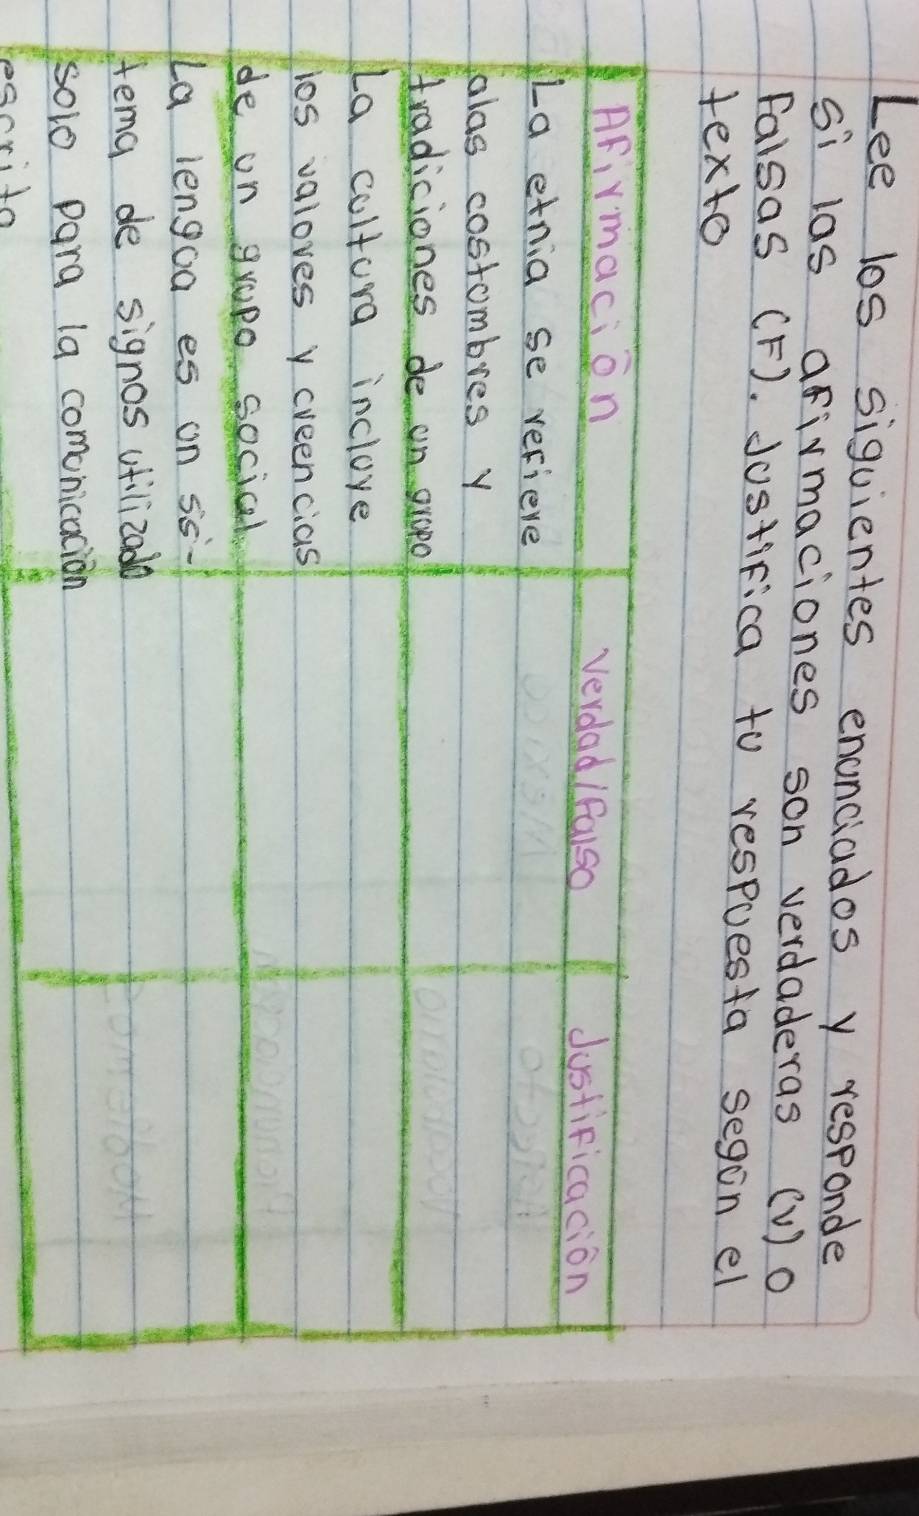 Lee los siguientes enunciados y responde
si las afirmaciones son verdaderas (V) o
falsas (F). Justifica tu respuesta según el
texto
Afirmación
Verdad/falso
Justificación
La etnia se refiere
alas costumbres y
tradiciones de un grupo
La cultura incluye
los valores y creencias
de un grupo social
La lengua es un sis-
tema de signos utilizado
solo para la comunicación
escrita